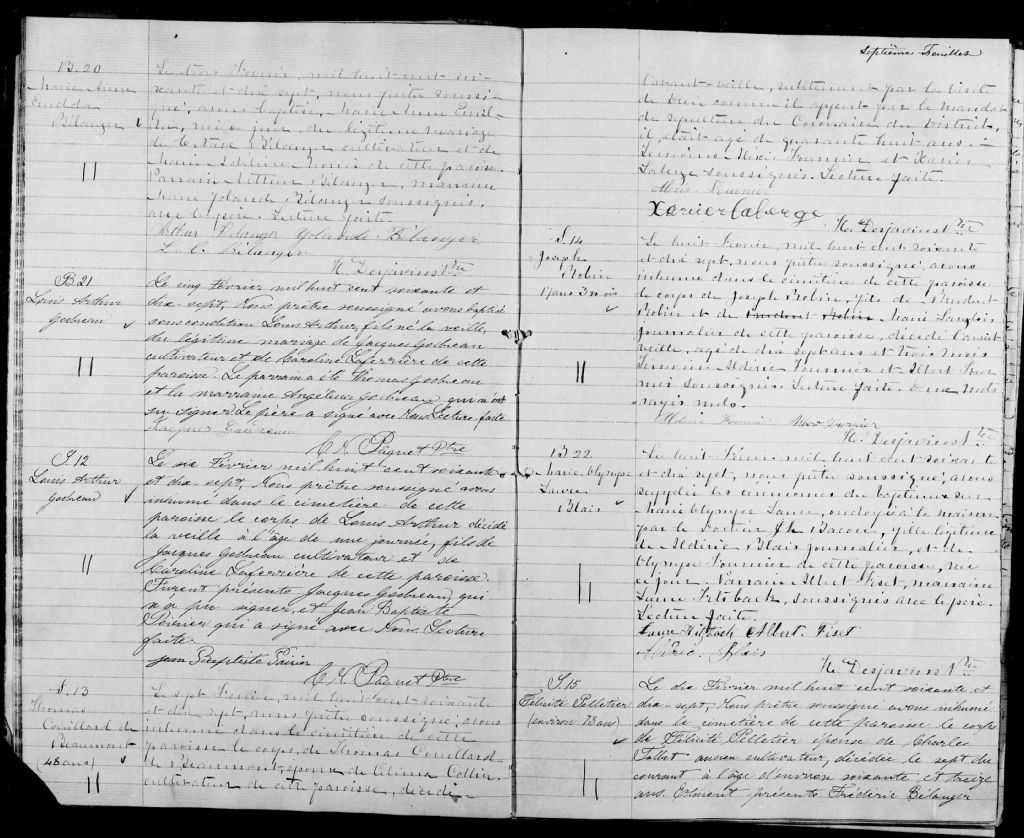 B.20
Marie Anne
Emelda
Bélanger
Le trois Février, mil huit cent soi-
xante et dix sept, nous prêtre soussi-
gné, avons baptisé, Marie Anne Emel-
da, née ce jour, du légitime mariage
de Octave Bélanger cultivateur et de
Marie de cette paroisse.
Parrain Arthur Bélanger, marraine
Marie Yolande Bélanger soussignés,
avec le père. Lecture faite.
Arthur Bélanger Yolande Bélanger
Bélanger
N. Desjavins Ptre
B.21
Louis Arthur
Gosbeau
Le cinq Février mil huit cent soixante et
dix sept, Nous prêtre soussigné avons baptisé
sous condition Louis Arthur, fils né la veille,
du légitime mariage de Jacques Gosbeau
cultivateur et de Caroline Laferrière de cette
paroisse. Le parrain a été Thomas Gosbeau
et la marraine Angelina Gosbeau qui n'ont
su signer. Le père a signé avec Nous. Lecture faite
Jacques
C. A. Paquet Ptre
S.12
Louis Arthur
Gosbeau
Le six Février mil huit cent soixante
et dix sept, Nous prêtre soussigné avons
inhumé dans le cimetière de cette
paroisse le corps de Louis Arthur décédé
la veille à l'âge de une journée, fils de
Jacques Gosbeau cultivateur et de
Caroline Laferrière de cette paroisse.
Furent présents Jacques Gosbeau, qui
n'a pu signer, et Jean Baptiste
Poirier qui a signé avec Nous. Lecture
faite.
Jean Baptiste Poirier
C. A. Paquet Ptre
S.13
Thomas
Couillard de
Beaumont
(48 ans)
Le sept Février, mil huit cent soixante
et dix sept, nous prêtre soussigné, avons
inhumé dans le cimétière de cette
paroisse le corps, de Thomas Couillard
de Beaumont, époux, de Collin,
cultivateur de cette paroisse, décédé
Septième Feuillet
l'avant-veille, subitement par la visite
de Dieu comme il appert par le mandat
de sépulture du Coronaire du District,
il était agé de quarante huit ans.-
Témoins Fournier et Xavier
Laberge soussignés. Lecture faite.
Fournier
Xavier Laberge
N. Desjavins Ptre
S.14
Joseph
Robin
17 ans 3 mois
Le huit Février, mil huit cent soixante
et dix sept, nous prêtre soussigné, avons
inhumé dans le cimétière de cette paroisse
le corps de Joseph Robin, fils de
Robin et de Marie Langlois
journalier de cette paroisse, décédé l'avant-
veille, agé de dix sept ans et trois mois
Témoins Fournier et Four-
nier soussignés. Lecture faite. mots
rayés nuls.
Fournier Fournier
N. Desjavins Ptre
B 22
Marie Olympe
Laure
Blais
Le huit Février mil huit cent soixante
et dix sept, nous prêtre soussigné, avons
supplée les cérémonies du baptême sur
Marie Olympe Laure, ondoyée à la maison
par le Docteur Bacon, fille légitime
de Aldéric Blais journalier, et de
Olympe Fournier de cette paroisse, née
ce jour. Parrain Albert Fiset, marraine
Laure Fitzback, soussignés avec le père.
Lecture faite.
Laure Fitzback Albert Fiset
Aldéric Blais
N. Desjavins Ptre
S.15
Félicité Pelletier
(environ 73 ans)
Le dix Février mil huit cent soixante et
dix-sept, Nous prêtre soussigné avons inhumé
dans le cimetière de cette paroisse le corps
de Félicité Pelletier épouse de Charles
Talbot ancien cultivateur, décédée le sept du
courant à l'âge d'environ soixante et treize
ans. Etaient présents Frédéric Bélanger